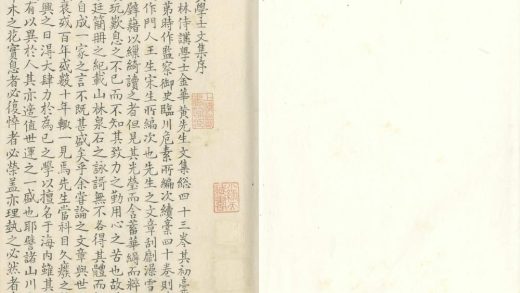 學士文集序
林侍講學士金華黃先生文集総四十三卷其初藁
苐時作監察御史臨川危素所編次續藁四十卷則
作門人王生宋生所編次也先生之文章刮劘澡雪
藉以繅綺讀之者但見其光瑩而含蓄華縟而粹
玩歎息之不已而不知其致力之勤用心之苦也故
廷簡冊之紀載山林泉石之詠謌無不各得其體而
自成一家之言不既甚盛矣乎余甞論之文章與世
衰或百年或數十年輒一見焉先生當科目久廢之
興之日淂大肆力於為己之學以擅名于海內雖其
有以異於人其亦適值世運之一盛也耶譬諸山川
木之花實息者必復悴者必榮盖亦理埶之必然者